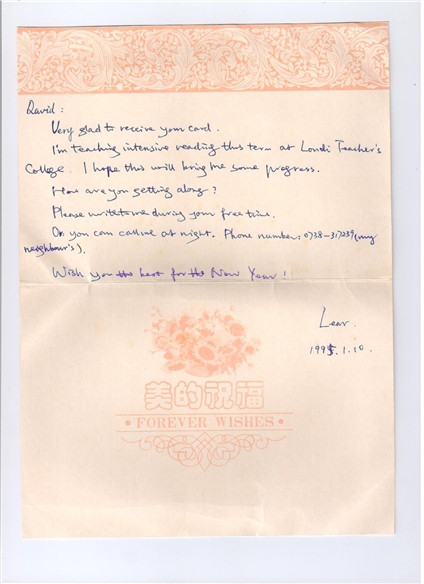 David:
Very glad to receive your card.
I'm teaching intensive reading this term at Loudi Teacher's
College. I hope this will bring me some progress.
How are you getting along?
Please write to me during your free time.
Or you can call me at night. Phone number: 0738-317239 (my
neighbour's).
Wish you the best for the New Year!
Lear.
1995.1.10.
美的祝福
• FOREVER WISHES •